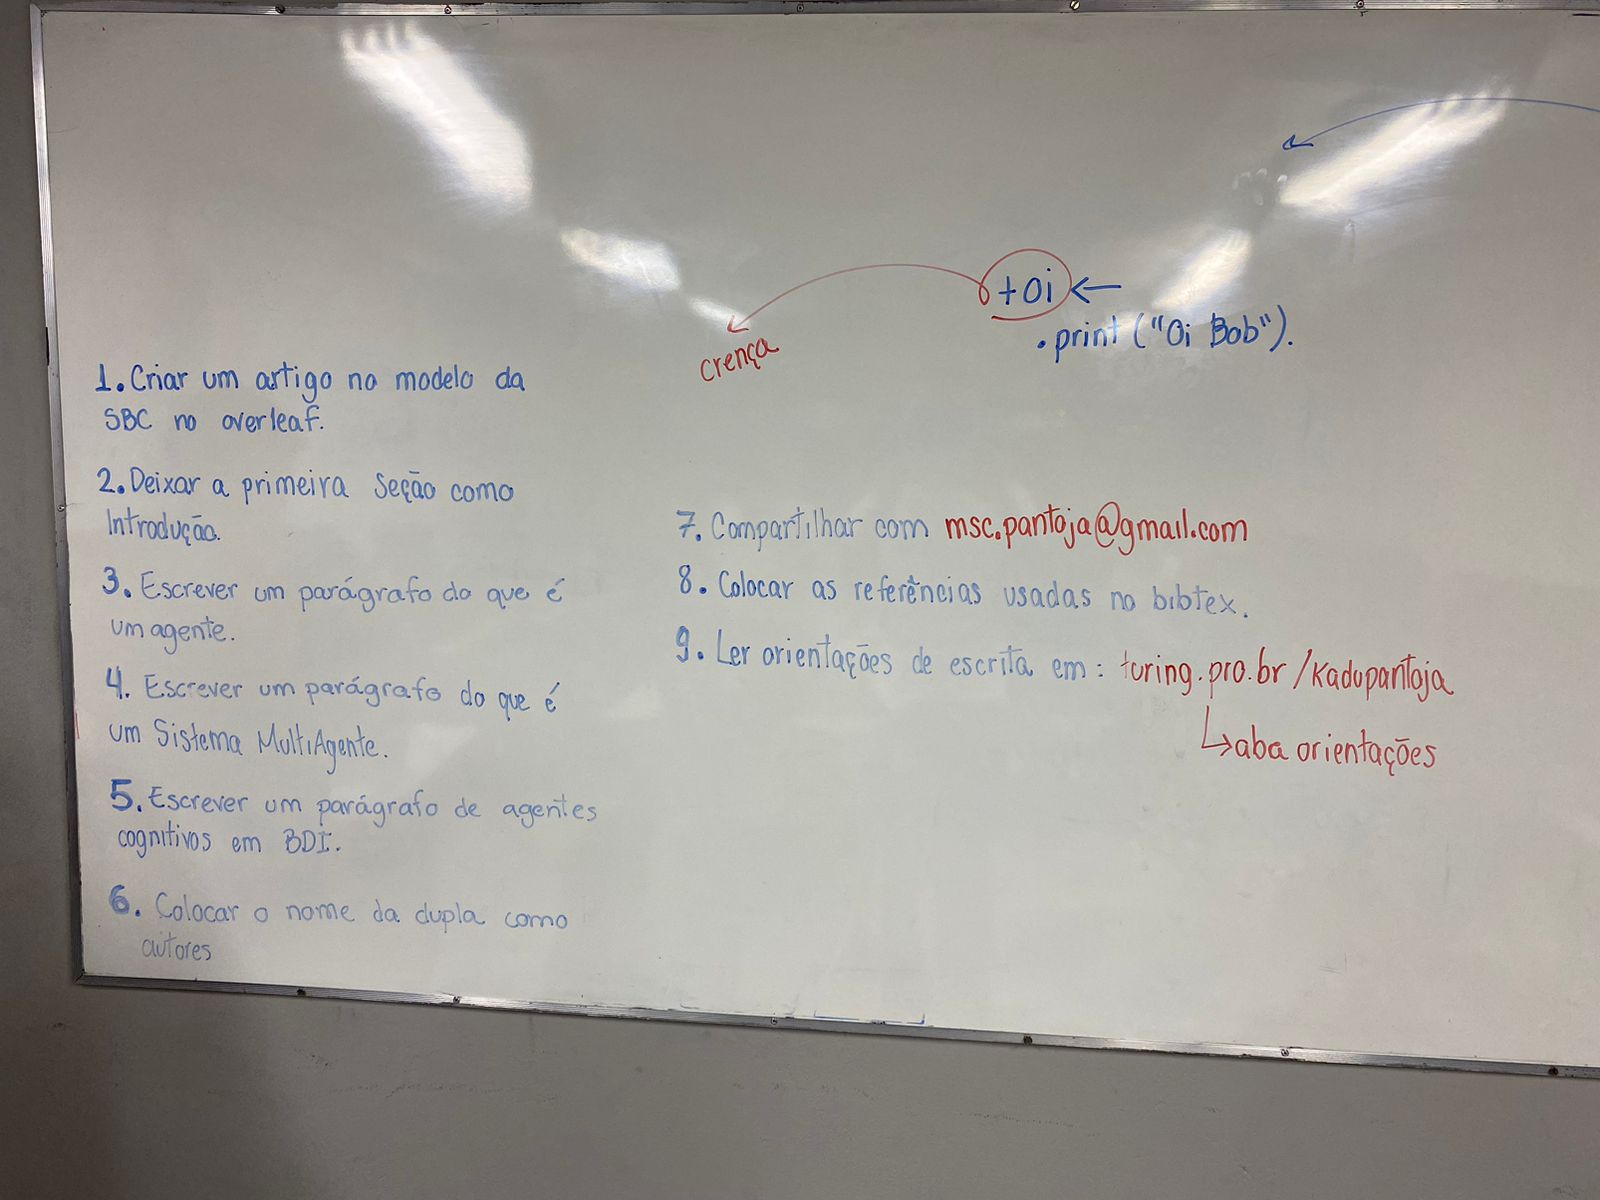 +oi <-
.print ("Oi Bob").
crença
1. Criar um artigo no modelo da
SBC no overleaf.
2. Deixar a primeira Seção como
Introdução.
3. Escrever um parágrafo do que é
um agente.
4. Escrever um parágrafo do que é
um Sistema MultiAgente.
5. Escrever um parágrafo de agentes
cognitivos em BDI.
6. Colocar o nome da dupla como
autores
7. Compartilhar com msc.pantoja@gmail.com
8. Colocar as referências usadas no bibtex.
9. Ler orientações de escrita em: turing.pro.br/Kadupantoja
↳aba orientações